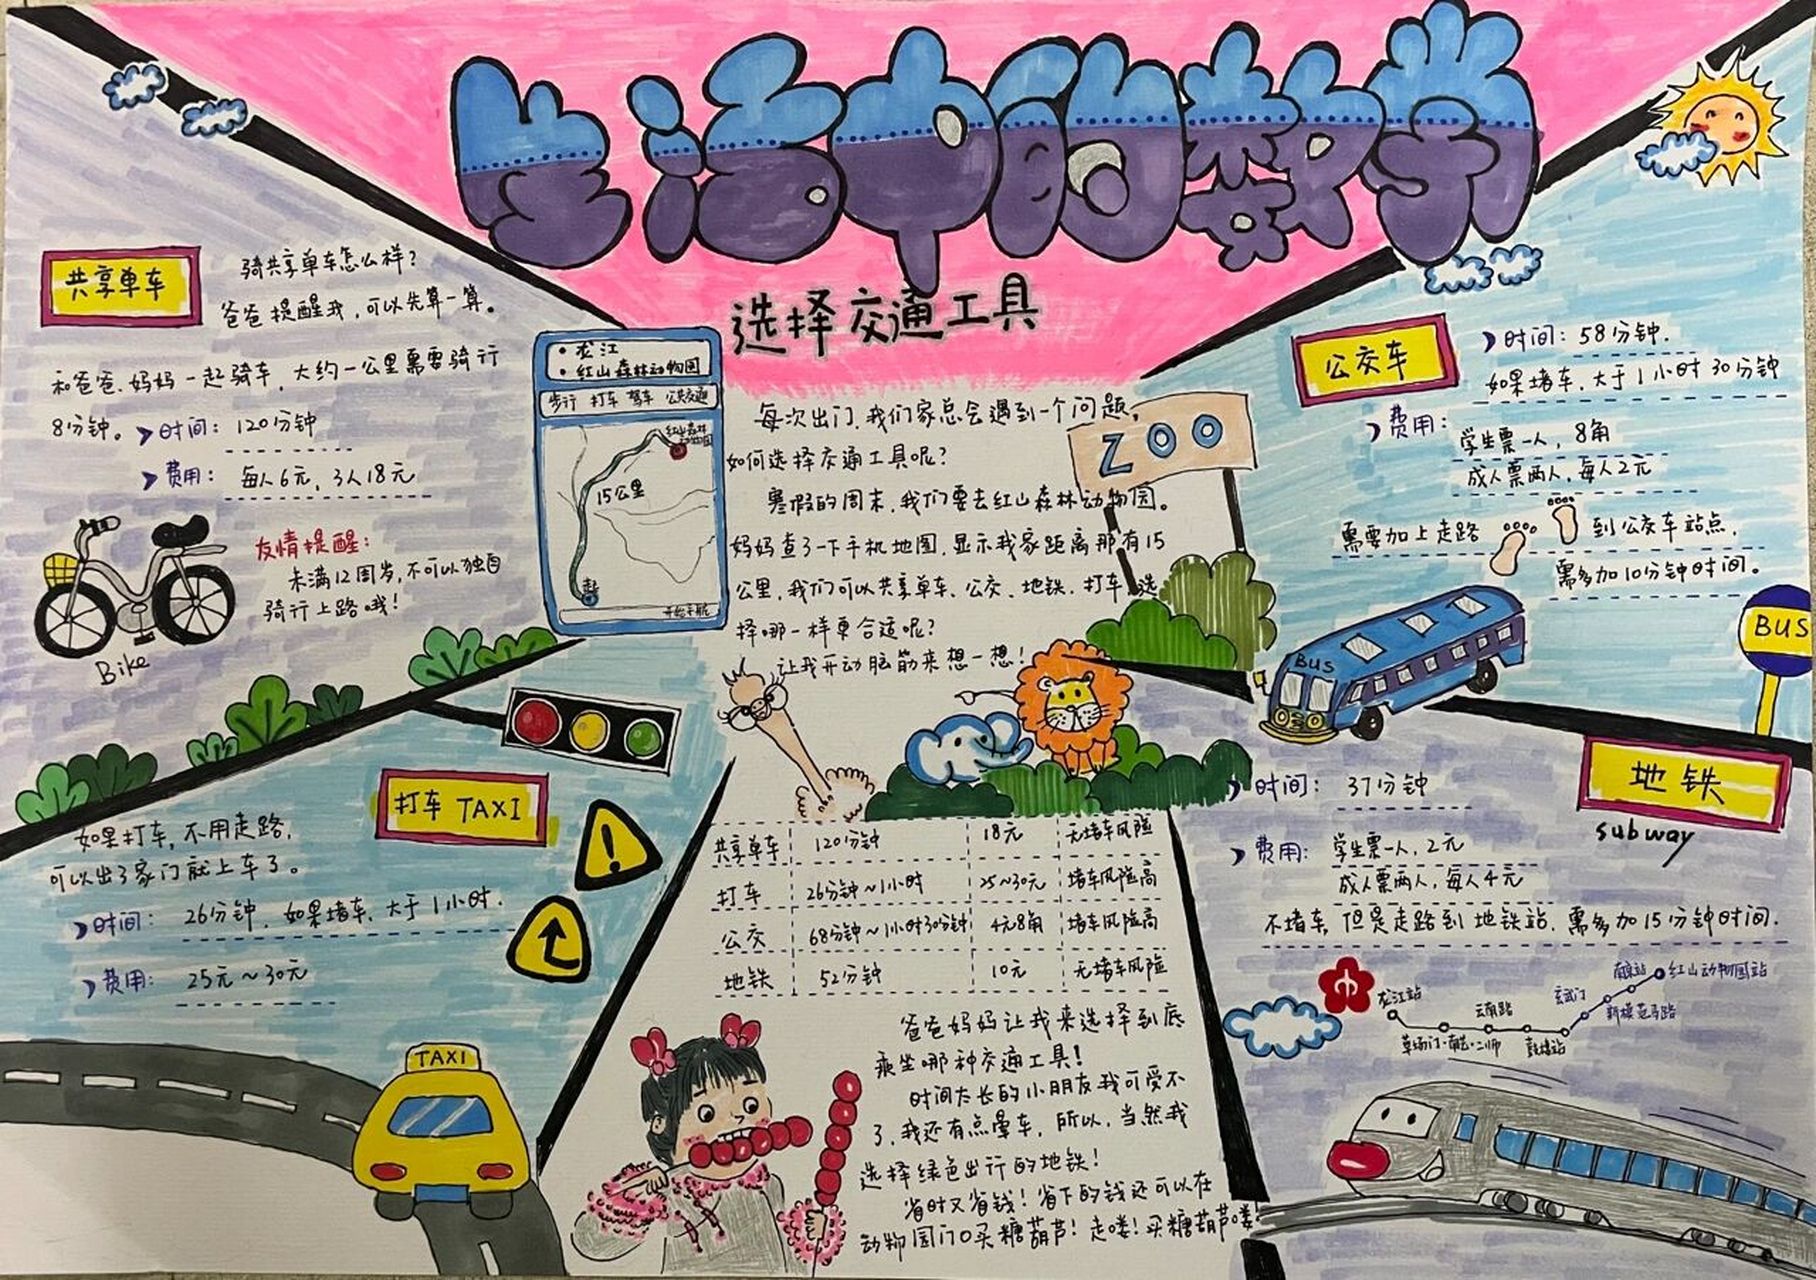 生活中的数学
选择交通工具
共享单车
骑共享单车怎么样?
爸爸提醒我,可以先算一算。
和爸爸、妈妈一起骑车,大约一公里需要骑行
8分钟。
时间: 120分钟
费用: 每人6元, 3人18元
友情提醒:
未满12周岁,不可以独自
骑行上路哦!
Bike
龙江
红山森林动物园
步行 打车 驾车 公共交通
红山森林
动物园
15公里
每次出门,我们家总会遇到一个问题,
如何选择交通工具呢?
寒假的周末,我们要去红山森林动物园。
妈妈查了一下手机地图,显示我家距离那有15
公里,我们可以共享单车、公交、地铁、打车,选
择哪一样更合适呢?
让我开动脑筋来想一想!
ZOO
公交车
时间: 58分钟.
如果堵车,大于1小时30分钟
费用:
学生票一人, 8角
成人票两人, 每人2元
需要加上走路 到公交车站点,
需多加10分钟时间。
BUS
BUS
打车 TAXI
如果打车,不用走路,
可以出了家门就上车了。
时间: 26分钟, 如果堵车,大于1小时.
费用: 25元~30元
TAXI
共享单车 120分钟 18元 无堵车风险
打车 26分钟~1小时 25~30元 堵车风险高
公交 68分钟~1小时30分钟 4元8角 堵车风险高
地铁 52分钟 10元 无堵车风险
爸爸妈妈让我来选择到底
乘坐哪种交通工具!
时间太长的小朋友我可受不
了,我还有点晕车, 所以,当然我
选择绿色出行的地铁!
省时又省钱!省下的钱还可以在
动物园门口买糖葫芦!走喽!买糖葫芦喽!
地铁
subway
时间: 37分钟
费用: 学生票一人, 2元
成人票两人, 每人4元
不堵车,但是走路到地铁站,需多加15分钟时间.
龙江站
草场门·南艺·二师
云南路
鼓楼站
玄武门
新模范马路
南京站
红山动物园站